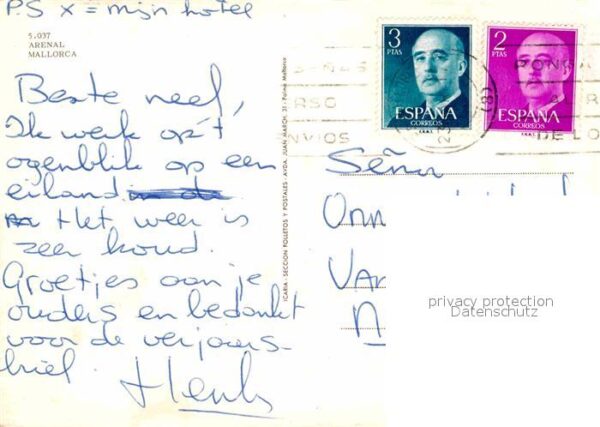 P.S x = mijn hotel
5.037
ARENAL
MALLORCA
Beste neef,
Ik werk op 't
ogenblik op een
eiland
Het weer is
zeer koud.
Groetjes aan je
ouders en bedankt
voor de verjaars-
brief.
Henk
ICARIA - SECCION FOLLETOS Y POSTALES - AVDA. JUAN MARCH, 31 - Palma Mallorca
3
PTAS
ESPAÑA
CORREOS
2
PTAS
ESPAÑA
CORREOS
PONGA
DE LO
Señor
privacy protection
Datenschutz